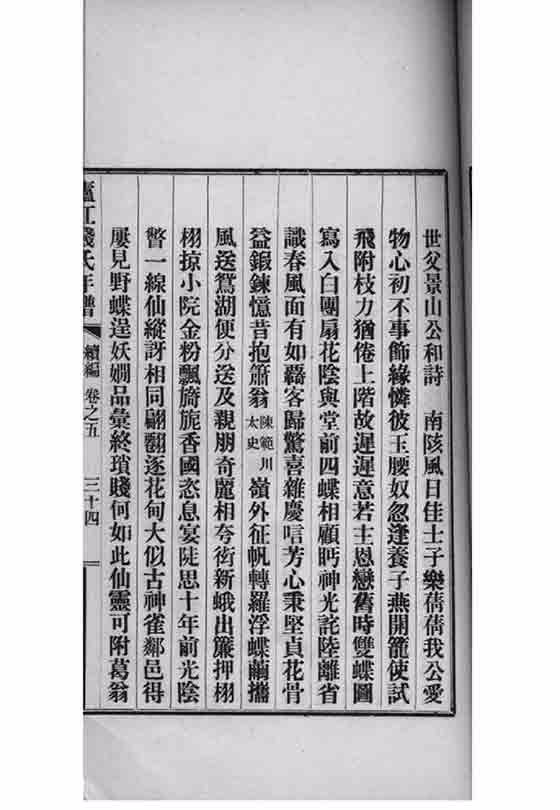 世父景山公和詩　南陔風日佳士子樂蒨蒨我公愛
物心初不事飾緣憐彼玉腰奴忽逢養子燕開籠使試
飛附枝力猶倦上階故遲遲意若主恩戀舊時雙蝶圖
寫入白團扇花陰與堂前四蝶相顧眄神光詫陸離省
識春風面有如覊客歸驚喜雜慶唁芳心秉堅貞花骨
益鍛鍊憶昔抱簫翁陳範川太史嶺外征帆轉羅浮蝶繭攜
風送鴛湖便分送及親朋奇麗相夸衒新蛾出簾押栩
栩掠小院金粉飄旖旎香國恣息宴陡思十年前光陰
瞥一線仙縱訝相同翩翾逐花甸大似古神雀鄰邑得
屢見野蝶逞妖嫺品彙終瑣賤何如此仙靈可附葛翁
廬江錢氏年譜　續編　卷之五　三十四